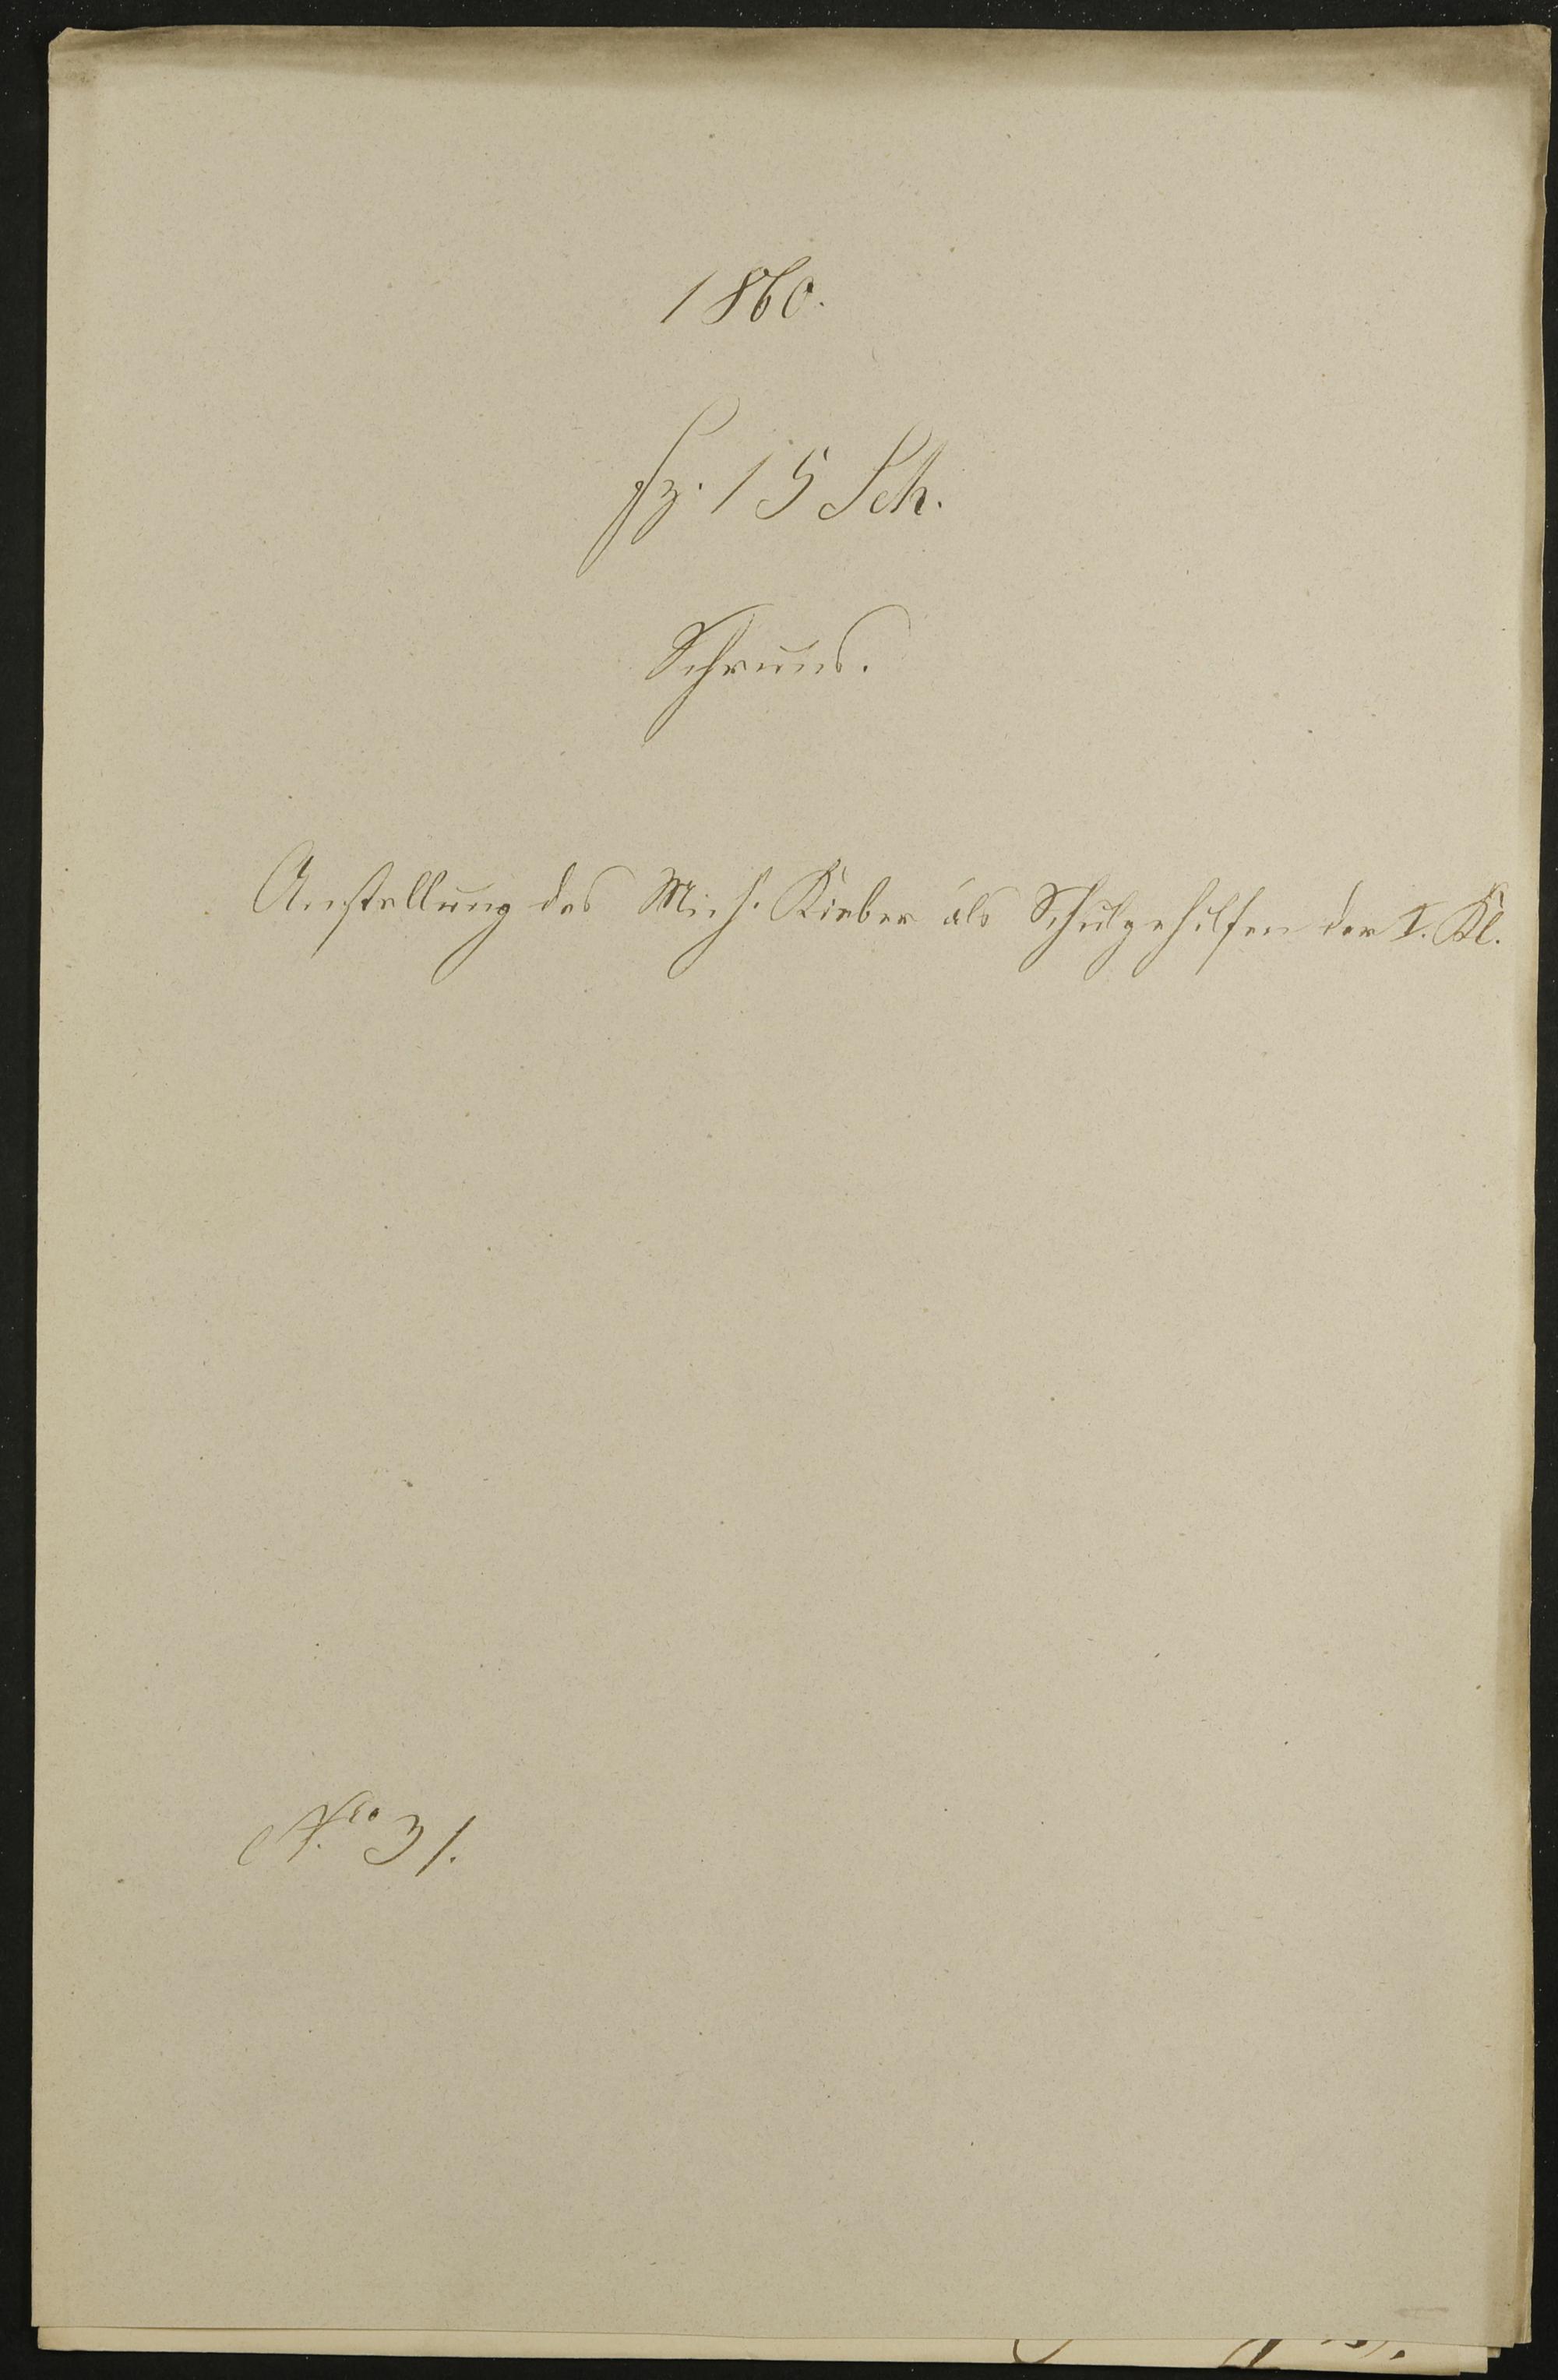 1860.
fz. 15 Sch.
Schruns.
Anstellung des Mich. Kieber als Schulgehilfen der I. Kl.
Nro 31.